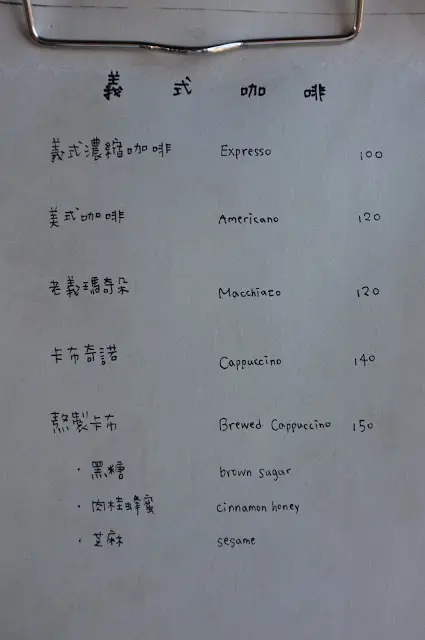 義式咖啡
義式濃縮咖啡 Expresso 100
美式咖啡 Americano 120
老義瑪奇朵 Macchiato 120
卡布奇諾 Cappuccino 140
熬製卡布 Brewed Cappuccino 150
· 黑糖 brown sugar
· 肉桂蜂蜜 cinnamon honey
· 芝麻 sesame